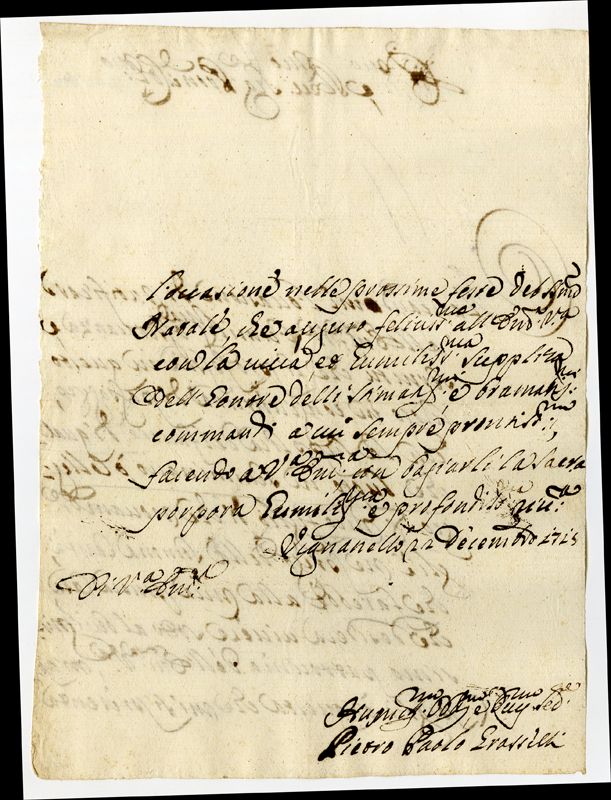 l'occasione nelle prossime feste del Smo
Natale che auguro feliciss.me all'Em.a V.ra
con la viva, ed humiliss.ma supplica
dell'honore delli stimatiss.mi e bramatiss.mi
commandi a cui sempre prontiss.mo,
facendo a V.a Em.a con bagiarli la sacra
porpora humiliss.ma e profondiss.ma riv.a
Vignanello 22 Decembre 1715
Di V.a Em.a
Humiliss.mo Dev.mo e
Pietro Paolo Grasselli